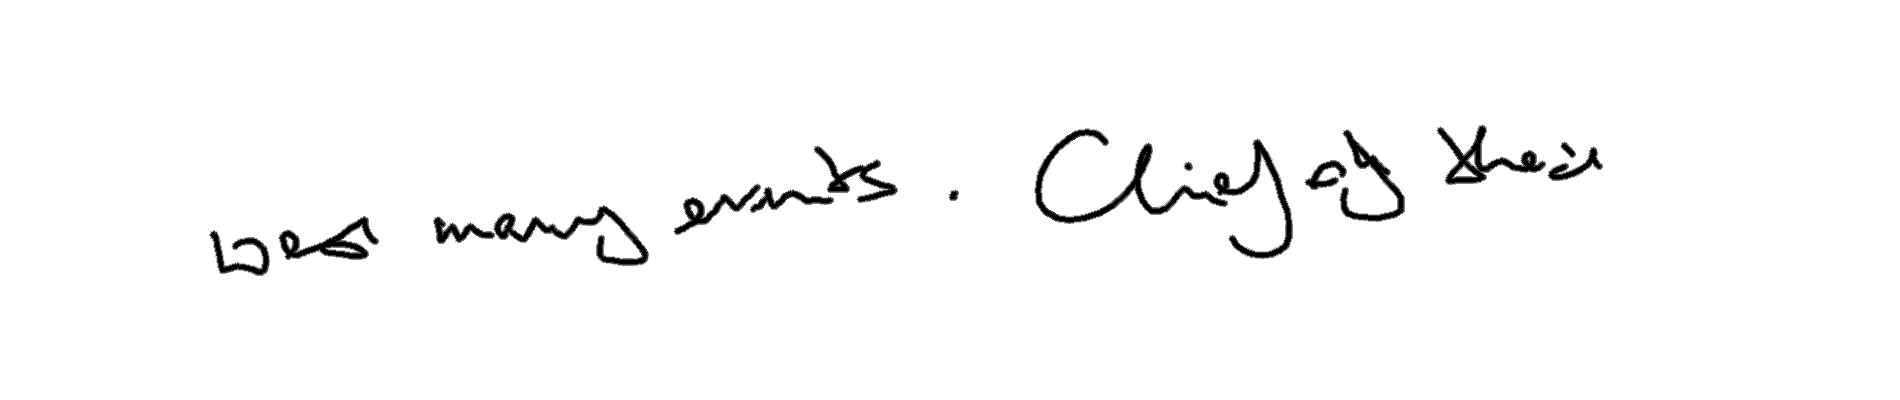 bear many events. Chief of their